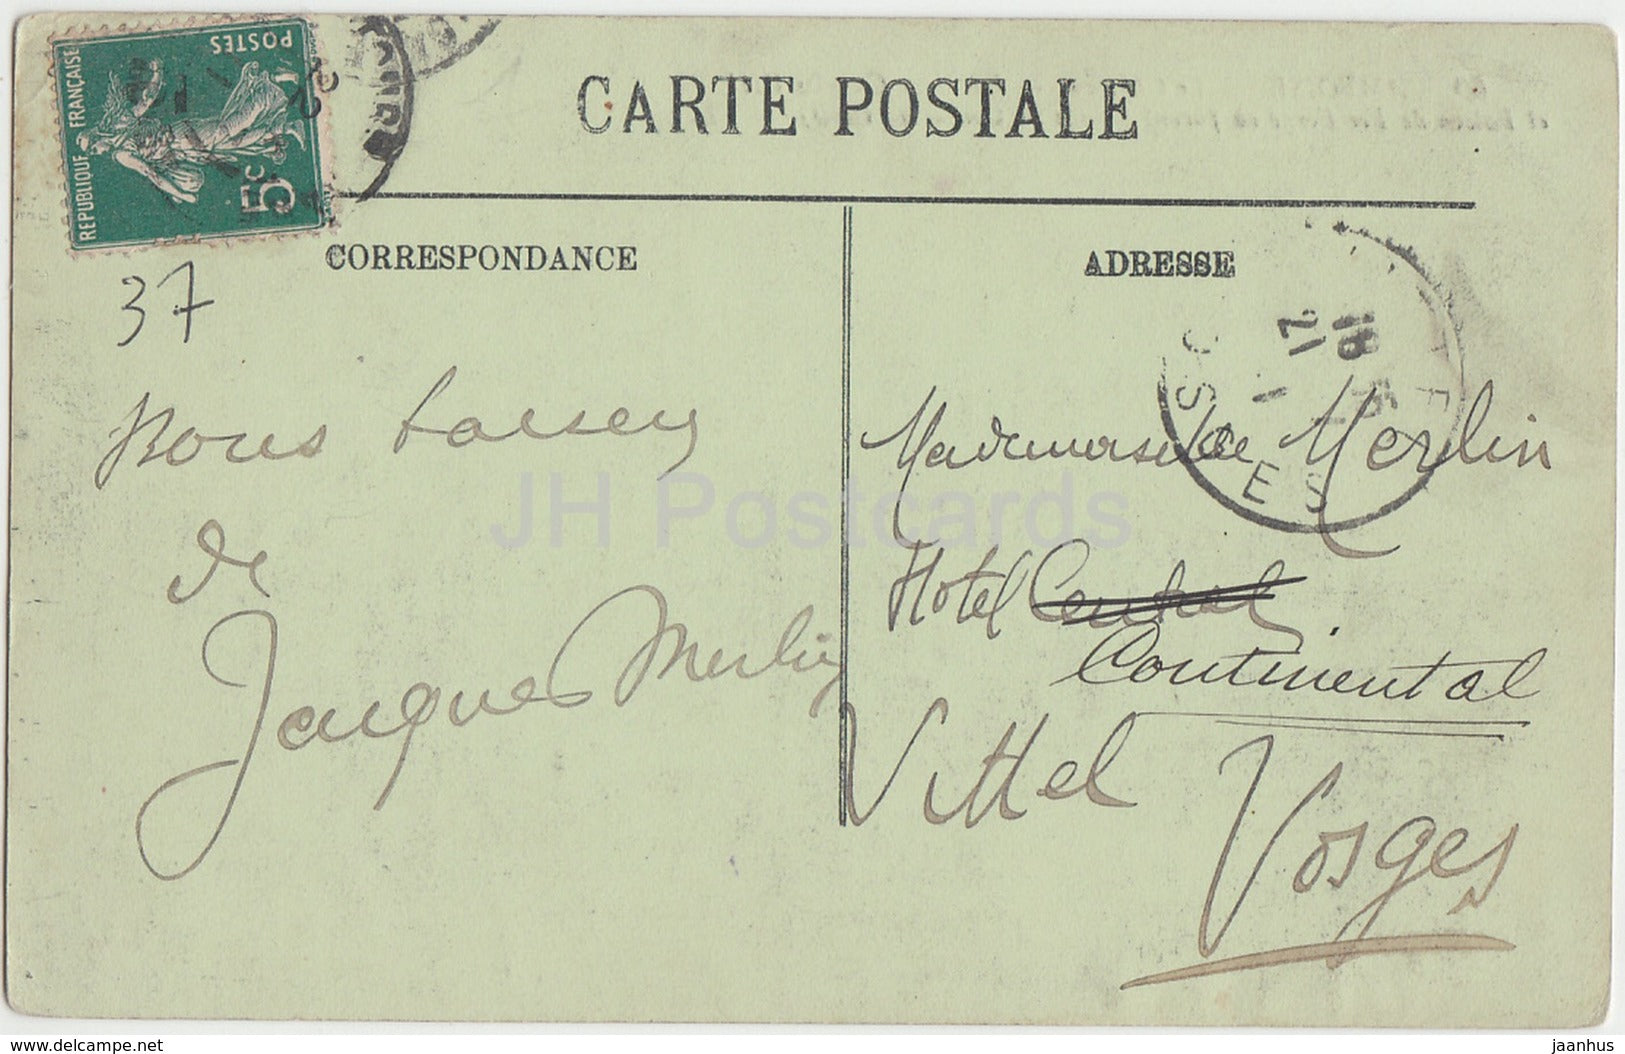 POSTES
REPUBLIQUE FRANÇAISE
5c
CARTE POSTALE
CORRESPONDANCE
37
Bons baisers
de
Jacques Merlin
ADRESSE
Mademoiselle Merlin
Hotel Central
Continental
Vittel
Vosges
JH Postcards
delcampe.net
jaanhus